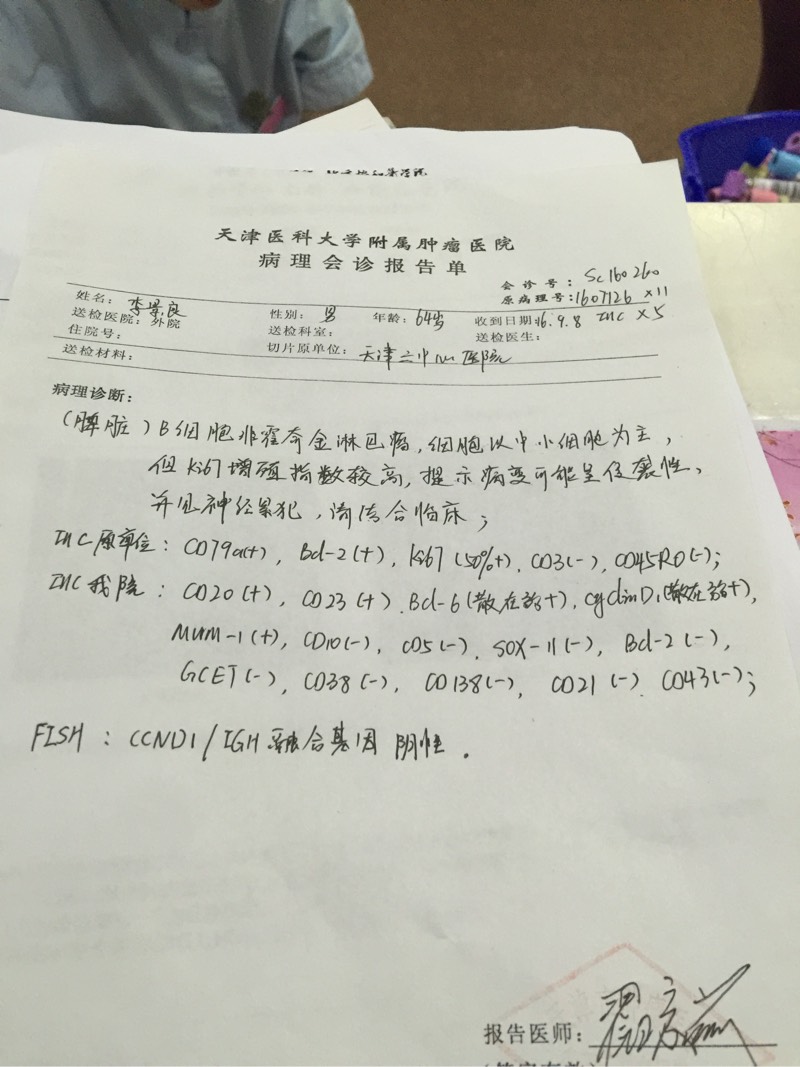 天津医科大学附属肿瘤医院
病理会诊报告单
会诊号: SC160260
原病理号: 1607126 ×11
姓名: 李景良 性别: 男 年龄: 64岁 收到日期: 16.9.8 IHC ×5
送检医院: 外院 送检科室: 送检医生:
住院号: 切片原单位: 天津三中心医院
送检材料:
病理诊断:
(脾脏) B细胞非霍奇金淋巴瘤, 细胞以中小细胞为主,
但Ki67增殖指数较高, 提示病变可能呈侵袭性,
并见神经累犯, 请结合临床;
IHC原单位: CD79a(+), Bcl-2(+), Ki67(50%+), CD3(-), CD45RO(-);
IHC我院: CD20(+), CD23(+), Bcl-6(散在弱+), CyclinD1(散在弱+),
MUM-1(+), CD10(-), CD5(-), SOX-11(-), Bcl-2(-),
GCET(-), CD38(-), CD138(-), CD21(-), CD43(-);
FISH: CCND1/IGH融合基因 阴性.
报告医师: